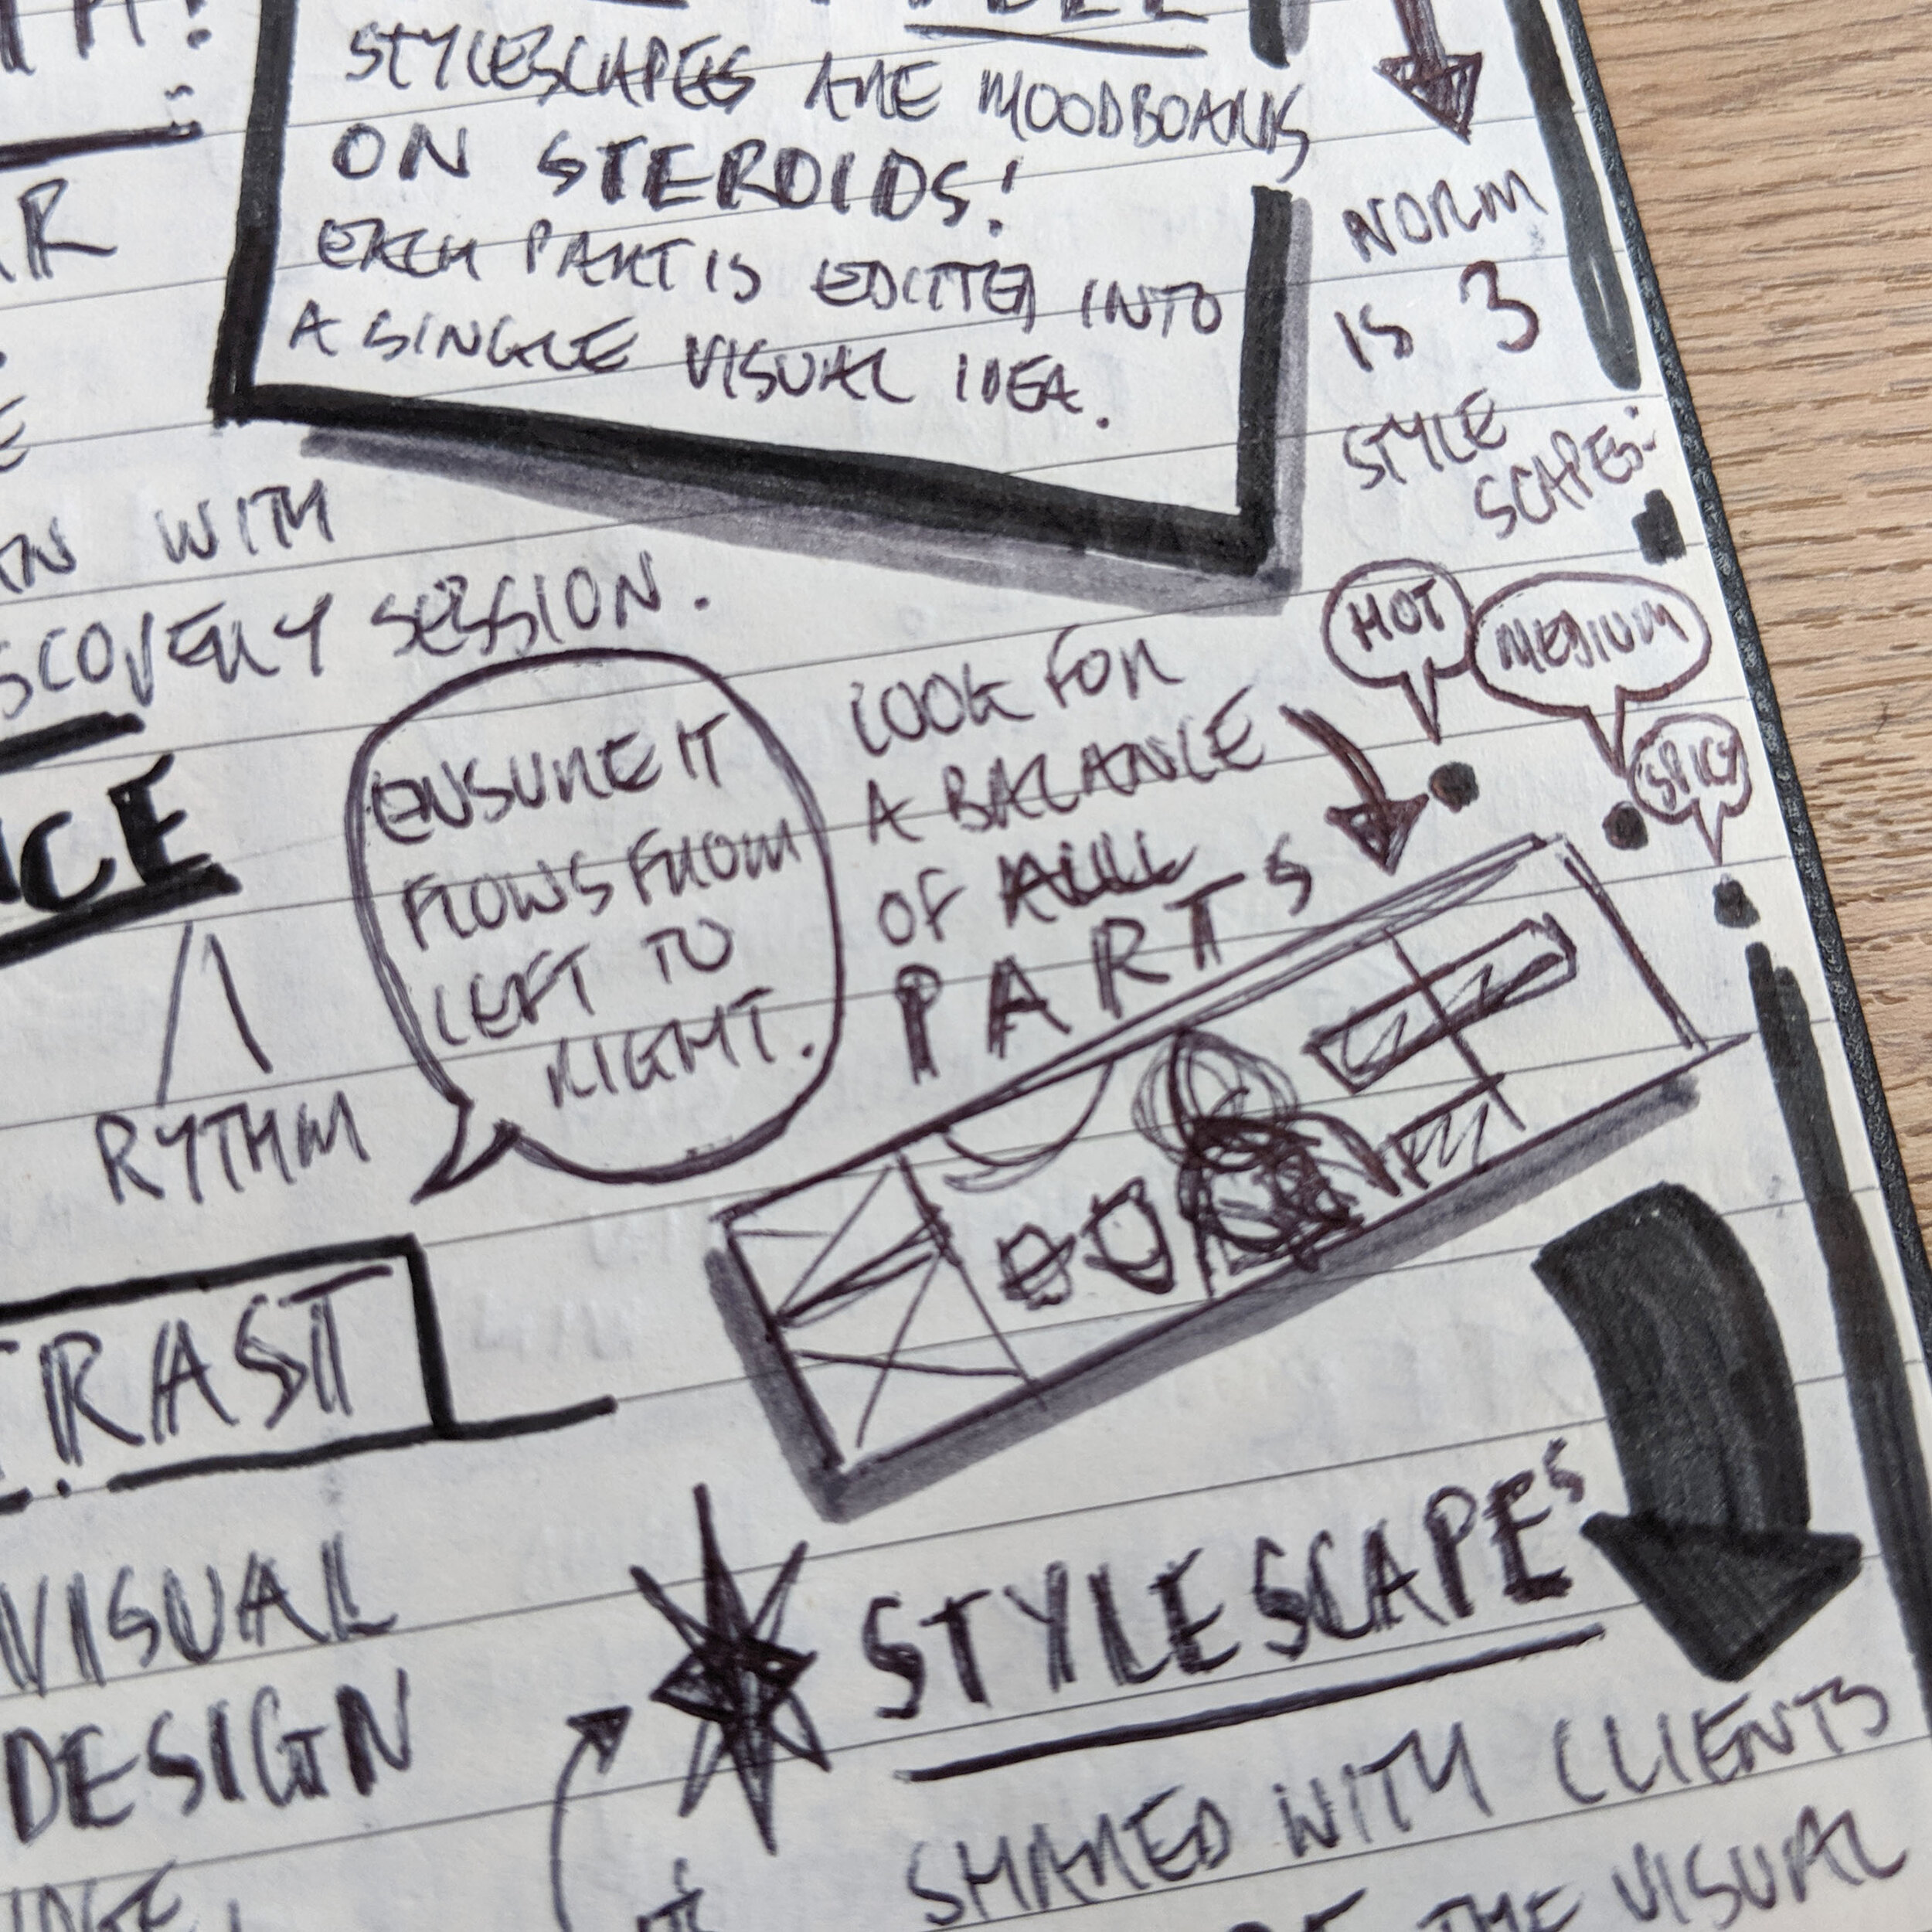 STYLESCAPES ARE MOODBOARDS
ON STEROIDS!
EACH PART IS EDITED INTO
A SINGLE VISUAL IDEA.
NORM
IS 3
STYLE
SCAPES:
HOT
MEDIUM
SPICY
WITH
SESSION.
ENSURE IT
FLOWS FROM
LEFT TO
RIGHT.
LOOK FOR
A BALANCE
OF ALL
PARTS
RYTHM
VISUAL
DESIGN
STYLESCAPES
SHARED WITH CLIENTS
THE VISUAL